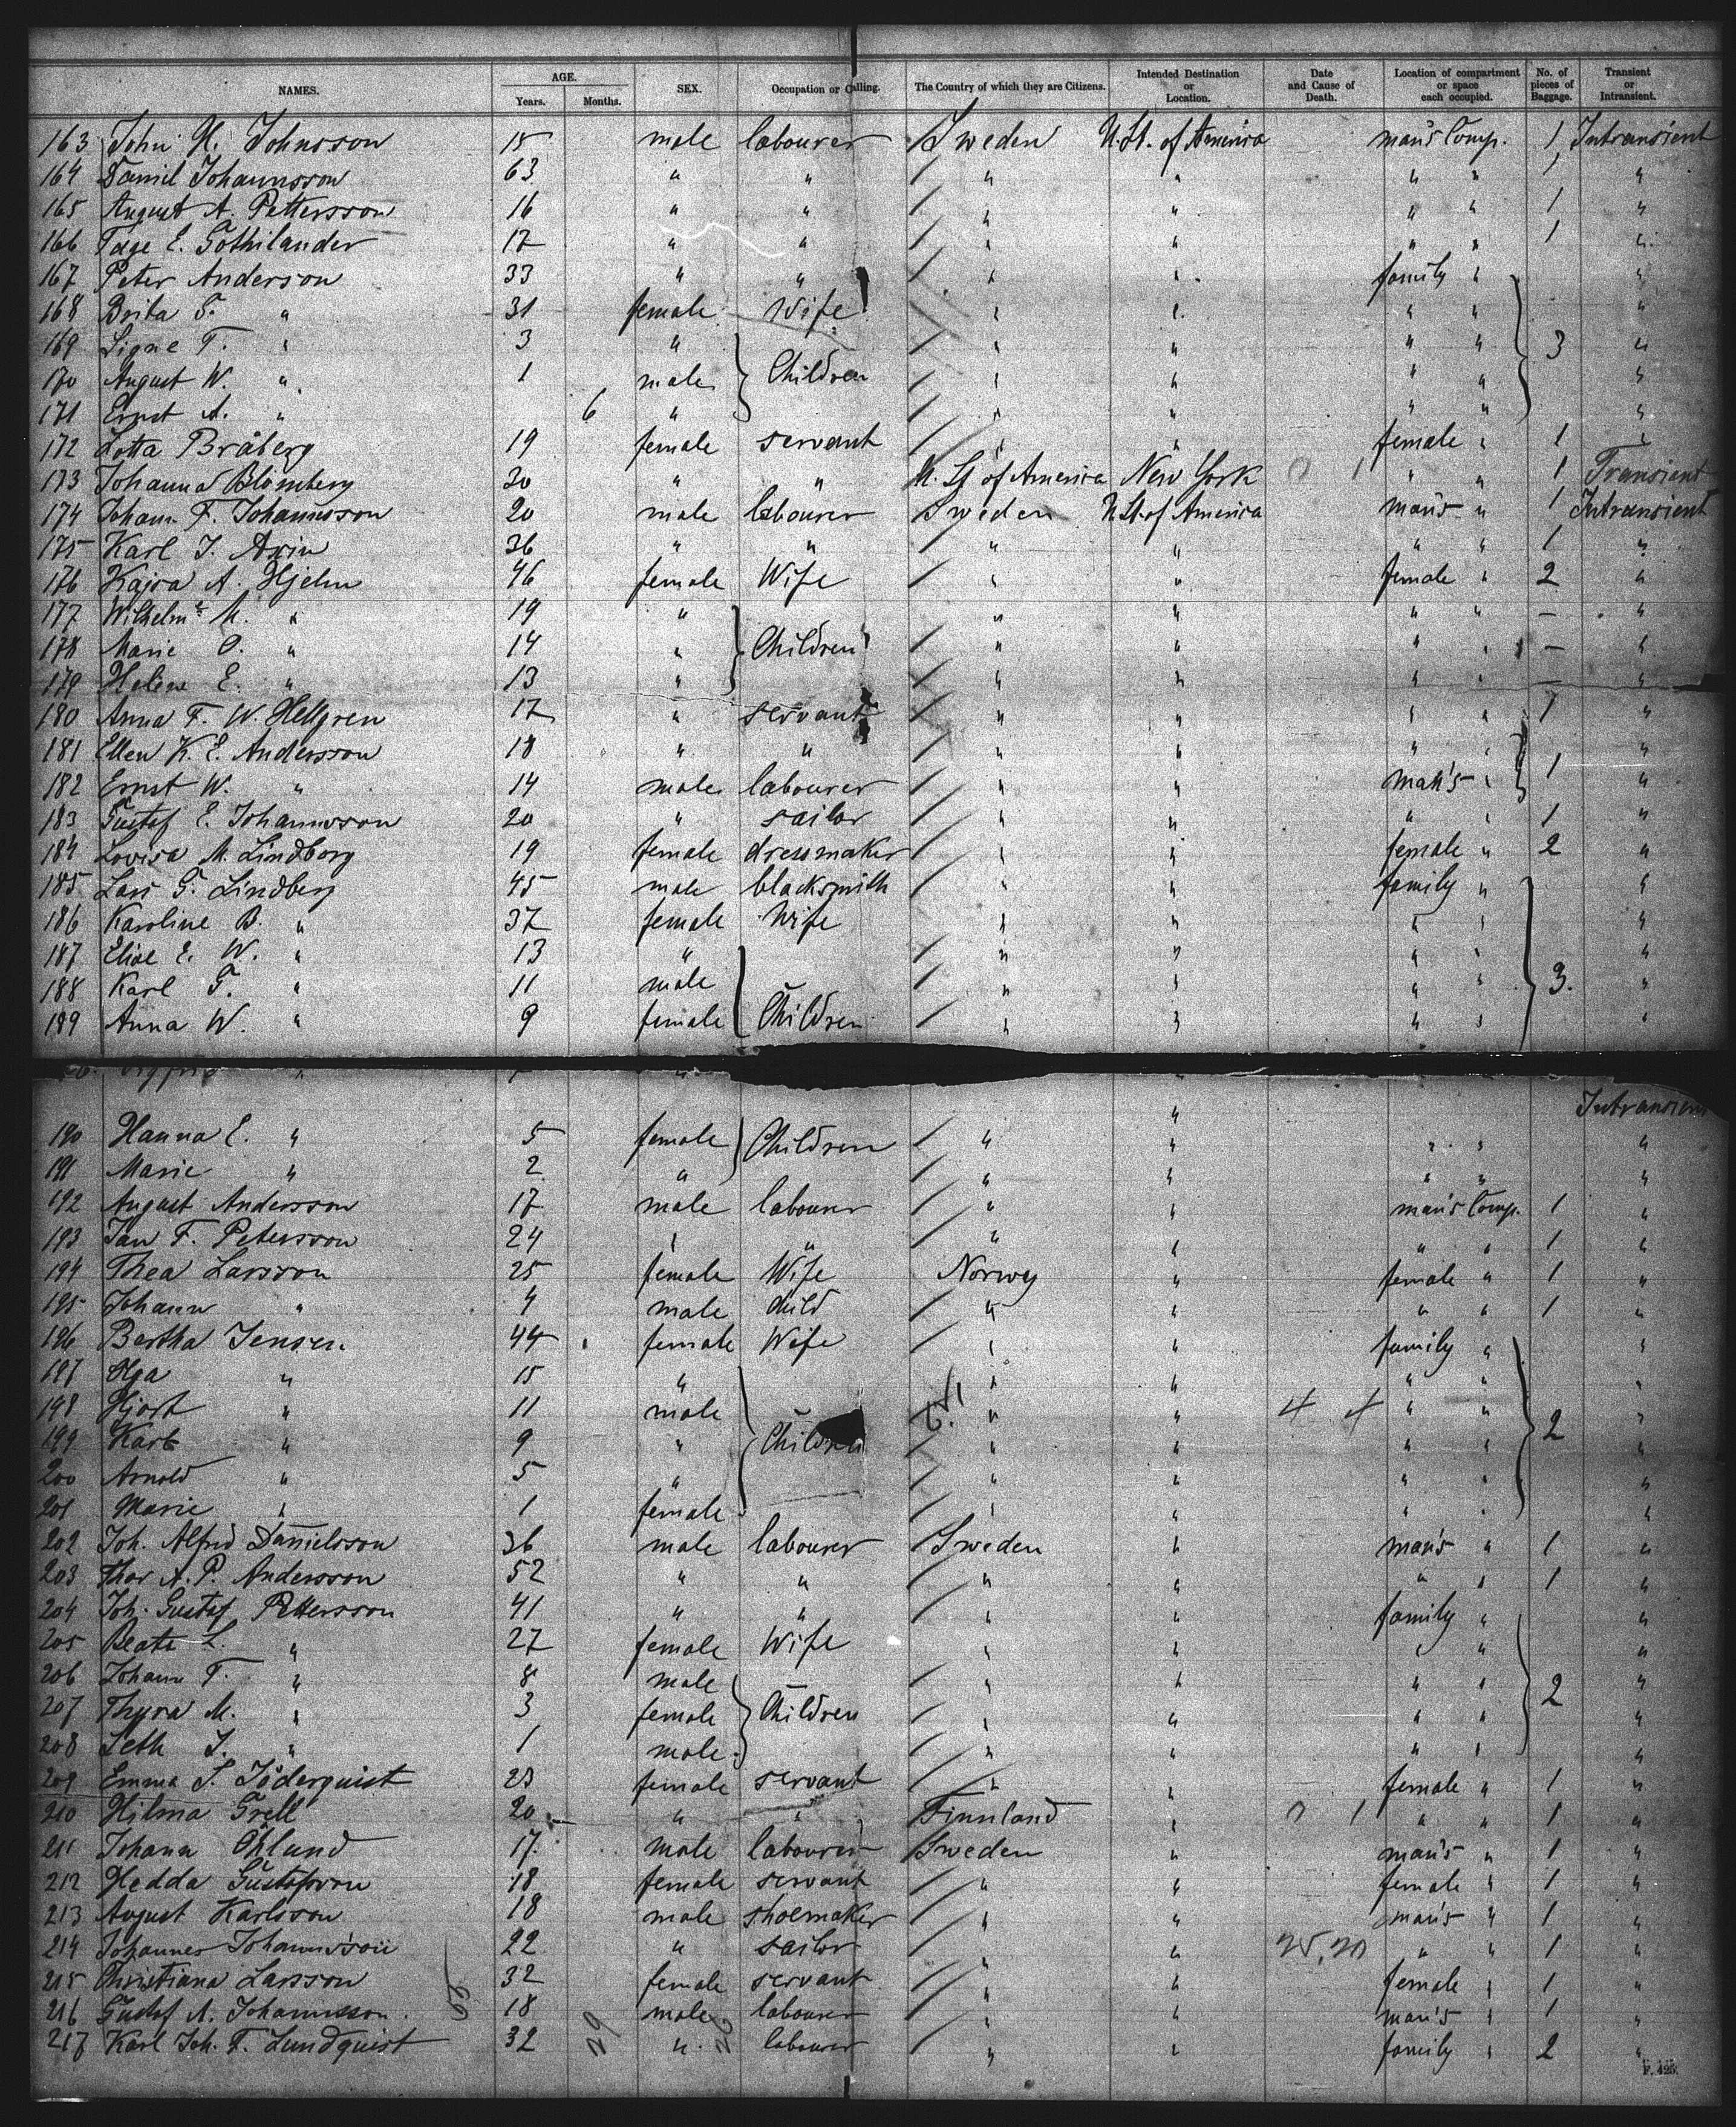 NAMES. AGE. Years. Months. SEX. Occupation or Calling. The Country of which they are Citizens. Intended Destination or Location. Date and Cause of Death. Location of compartment or space each occupied. No. of pieces of Baggage. Transient or Intransient.
163 John H. Johnsson 15 male labourer Sweden U. St. of America man's Comp. 1 Intransient
164 Daniel Johannsson 63 " " " " " " 1 "
165 August A. Pettersson 16 " " " " " " 1 "
166 Tage E. Gothilander 17 " " " " " " 1 "
167 Peter Anderson 33 " " " " family " "
168 Brita G. " 31 female Wife " " " " "
169 Signe T. " 3 " " " " " 3 "
170 August W. " 1 male Children " " " " "
171 Ernst A. " 6 " " " " " "
172 Lotta Bråberg 19 female servant " " female " 1 "
173 Johanna Blomberg 30 " " U. St of America New York 0 1 " " 1 Transient
174 Johann F. Johannsson 20 male labourer Sweden U St. of America man's " 1 Intransient
175 Karl J. Axin 36 " " " " " " 1 "
176 Kajsa A. Hjelm 46 female Wife " " female " 2 "
177 Wilhelm<sup>e</sup> M. " 19 " " " " " — "
178 Marie O. " 14 " Children " " " " — "
179 Helene E. " 13 " " " " " — "
180 Anna F. W. Hellgren 17 " servant " " " " 1 "
181 Ellen K. E. Andersson 18 " " " " " " "
182 Ernst W. " 14 male labourer " " man's " 1 "
183 Gustaf E. Johannsson 20 " sailor " " " " 1 "
184 Lovisa M. Lindborg 19 female dressmaker " " female " 2 "
185 Lars G. Lindberg 45 male blacksmith " " family " "
186 Karoline B. " 37 female Wife " " " " "
187 Elise E. W. " 13 " " " " " "
188 Karl G. " 11 male " " " " 3. "
189 Anna W. " 9 female Children " " " " "
Intransient
190 Hanna E. " 5 female Children " " " " "
191 Marie " 2 " " " " " "
192 August Andersson 17 male labourer " " man's Comp. 1 "
193 Jan F. Petersson 24 " " " " " " 1 "
194 Thea Larsson 25 female Wife Norway " female " 1 "
195 Johann " 4 male child " " " " 1 "
196 Bertha Jensen 44 female Wife " " family " "
197 Olga " 15 " " " " " "
198 Hjort " 11 male " " 4 4 " " 2 "
199 Karl " 9 " Children " " " " "
200 Arnold " 5 " " " " " "
201 Marie " 1 female " " " " "
202 Joh. Alfred Danielsson 36 male labourer Sweden " man's " 1 "
203 Thor A. P. Andersson 52 " " " " " " 1 "
204 Joh. Gustaf Pettersson 41 " " " " family " "
205 Beate L. " 27 female Wife " " " " "
206 Johann F. " 8 male " " " " "
207 Thyra M. " 3 female Children " " " " 2 "
208 Seth J. " 1 male " " " " "
209 Emma S. Söderquist 23 female servant " " female " 1 "
210 Hilma Grell 20 " " Finnland " 0 1 " " 1 "
211 Johann Öhlund 17 male labourer Sweden " man's " 1 "
212 Hedda Gustafsson 18 female servant " " female " 1 "
213 August Karlsson 18 male shoemaker " " man's " 1 "
214 Johannes Johannsson 22 " sailor " " 25,20 " " 1 "
215 Christiana Larsson 32 female servant " " female " 1 "
216 Gustaf A. Johannsson 18 male labourer " " man's " 1 "
217 Karl Joh. F. Lundquist 32 " labourer " " family " 2 "
55 29 26